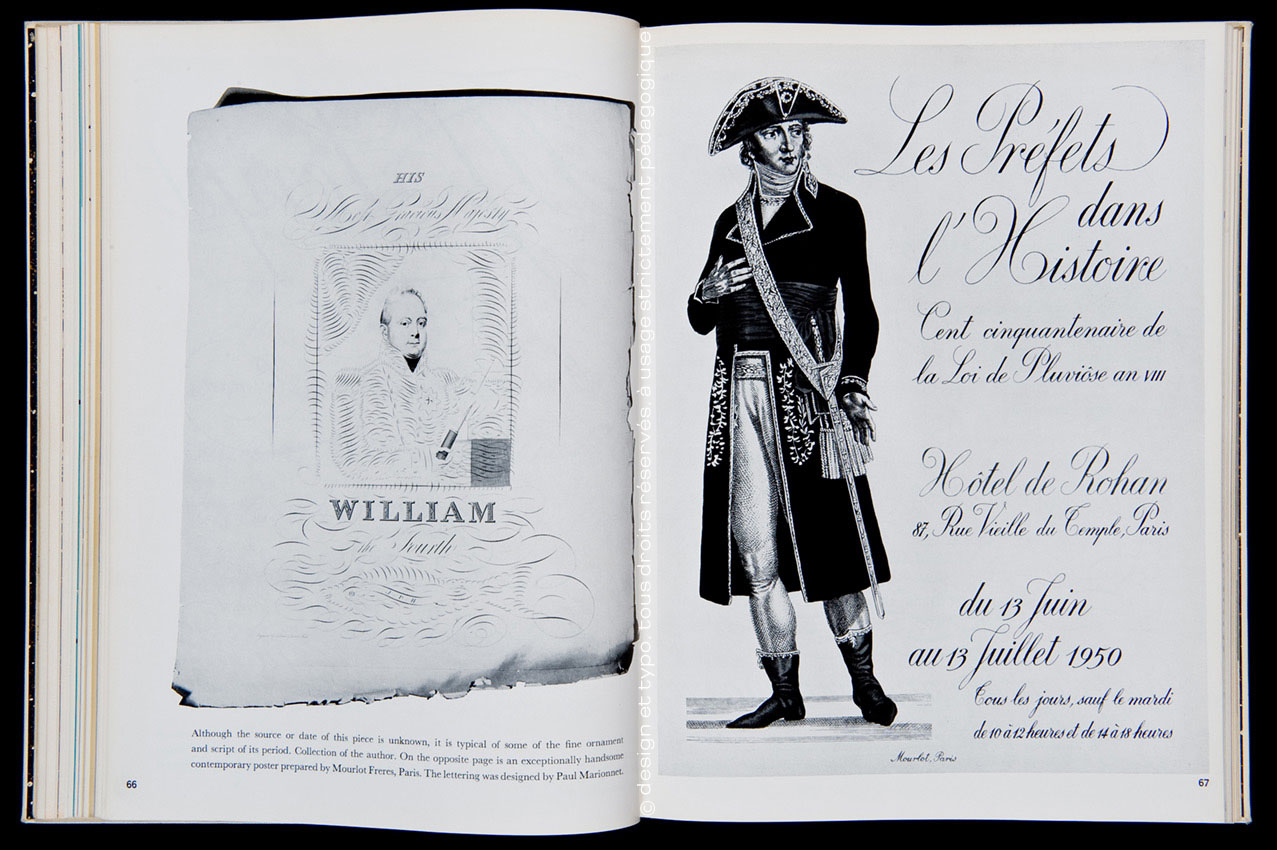 HIS
Most Gracious Majesty
WILLIAM
the Fourth
Although the source or date of this piece is unknown, it is typical of some of the fine ornament
and script of its period. Collection of the author. On the opposite page is an exceptionally handsome
contemporary poster prepared by Mourlot Freres, Paris. The lettering was designed by Paul Marionnet.
66
© design et typo. tous droits réservés à usage strictement pédagogique
Les Préfets
dans
l'Histoire
Cent cinquantenaire de
la Loi de Pluviôse an VIII
Hôtel de Rohan
87, Rue Vieille du Temple, Paris
du 13 Juin
au 13 Juillet 1950
Tous les jours, sauf le mardi
de 10 à 12 heures et de 14 à 18 heures
Mourlot, Paris
67